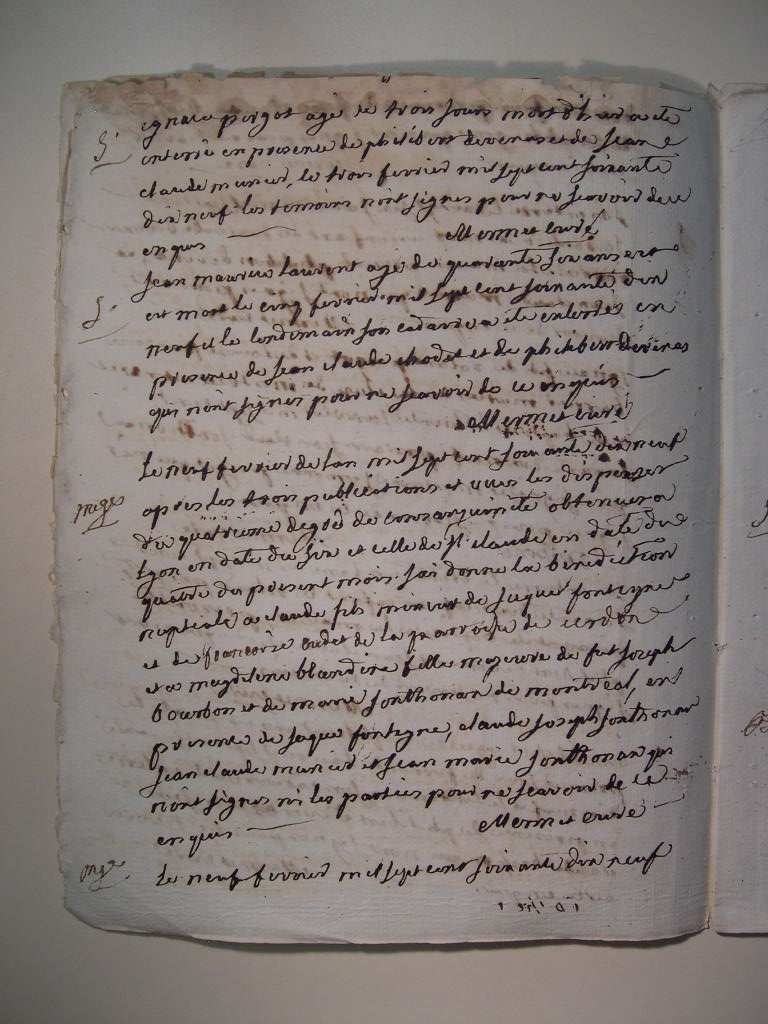 ignace pergot agé de trois jours mort d'hier a été
S. enterré en presence de philibert devenas et de Jean
claude munier, le trois fevrier mil sept cent soixante
dix neuf les temoins n'ont signes pour ne scavoir de ce
enquis Mermet curé
Jean maurice laurent agé de quarante six ans est
S. mort le cinq fevrier mil sept cent soixante dix
neuf et le lendemain son cadavre a été enterré en
presence de Jean claude chodet et de philibert devenas
qui n'ont signes pour ne scavoir de ce enquis
Mermet curé
Le neuf fevrier de l'an mil sept cent soixante dix neuf
mge apres les trois publications et vues les dispenses
du quatrieme degré de consanguinité obtenues a
Lyon en date du six et celle de St claude en date du
quatre du present mois j'ai donné la bénédiction
nuptiale a claude fils mineur de Jaque fontegne
et de francoise cudet de la parroisse de cerdon
et a magdelene blandine fille majeure de fut Joseph
bourbon et de marie Jonthonan de montreal, en
presence de Jaque fontegne, claude Joseph Jonthonan
Jean claude munier et Jean marie Jonthonan qui
n'ont signes ni les parties pour ne scavoir de ce
enquis Mermet curé
mge. Le neuf fevrier mil sept cent soixante dix neuf